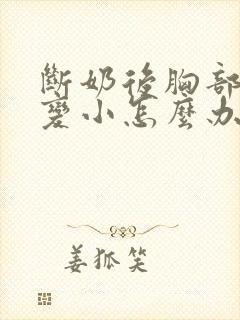 斷奶後胸部
變小怎麼办
姜狐笑